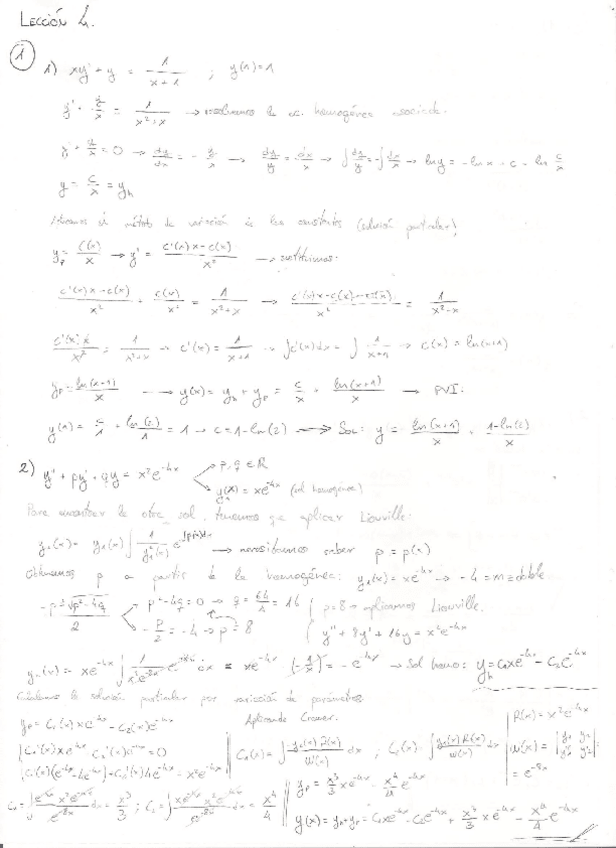 LECCIÓN 4.
①
1) xy' + y = 1/(x+1) ; y(1) = 1
y' + y/x = 1/(x²+x) → resolvemos la ec. homogénea asociada.
y' + y/x = 0 → dy/dx = - y/x → dy/y = - dx/x → ∫dy/y = -∫dx/x → ln y = -ln x + c = ln c/x
y = c/x = y_h
método de variación de las constantes (solución particular)
y_p = c(x)/x → y' = (c'(x)x - c(x))/x² → sustituimos:
(c'(x)x - c(x))/x² + c(x)/x² = 1/(x²+x) → (c'(x)x - c(x) + c(x))/x² = 1/(x²+x)
c'(x)x/x² = 1/(x²+x) → c'(x) = 1/(x+1) → ∫c'(x)dx = ∫ 1/(x+1) → c(x) = ln(x+1)
y_p = ln(x+1)/x → y(x) = y_h + y_p = c/x + ln(x+1)/x → PVI:
y(1) = c/1 + ln(2)/1 = 1 → c = 1 - ln(2) → Sol: y = ln(x+1)/x + (1-ln(2))/x
2) y'' + py' + qy = x²e^{-4x} → p, q ∈ ℝ
→ y₁(x) = xe^{-4x} (sol homogénea)
Para encontrar la otra sol. tenemos que aplicar Liouville:
y₂(x) = y₁(x) ∫ 1/y₁²(x) e^{-∫p(x)dx} → necesitamos saber p = p(x)
Obtenemos p a partir de la homogénea: y₁(x) = xe^{-4x} → -4 = m = doble
(-p ± √(p² - 4q))/2 → p² - 4q = 0 → q = 64/4 = 16
→ -p/2 = -4 → p = 8
p = 8 → aplicamos Liouville.
y'' + 8y' + 16y = x²e^{-4x}
y₂(x) = xe^{-4x} ∫ 1/(x²e^{-8x}) e^{-8x} dx = xe^{-4x} · (-1/x) = -e^{-4x} → Sol homo: y_h = C₁xe^{-4x} - C₂e^{-4x}
la solución particular por variación de parámetros
y_p = C₁(x)xe^{-4x} - C₂(x)e^{-4x}
Aplicando Cramer.
C₁'(x)xe^{-4x} - C₂'(x)e^{-4x} = 0
R(x) = x²e^{-4x}
= e^{-8x}
y_p = x³/3 xe^{-4x} - x⁴/4 e^{-4x}
y(x) = y_h + y_p = C₁xe^{-4x} - C₂e^{-4x} + x³/3 xe^{-4x} - x⁴/4 e^{-4x}